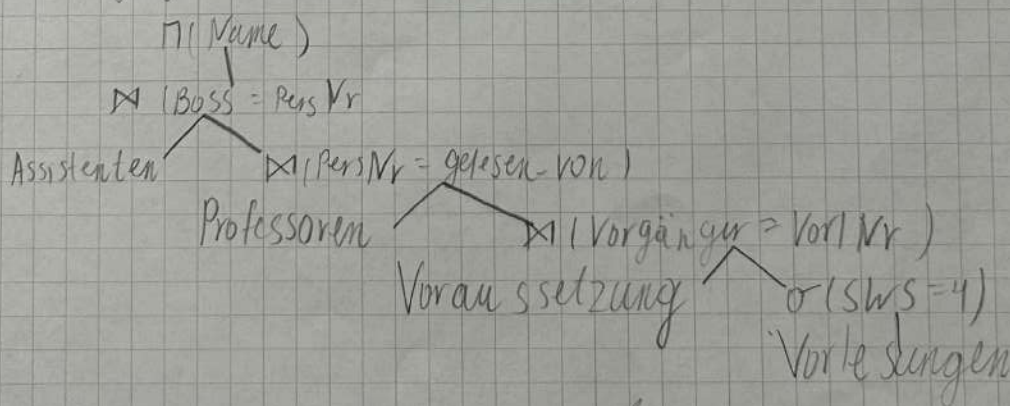 Π(Name)
⋈ (Boss = PersNr
Assistenten ⋈ (PersNr = gelesen_von)
Professoren ⋈ (Vorgänger = VorlNr)
Voraussetzung σ(SWS=4)
Vorlesungen